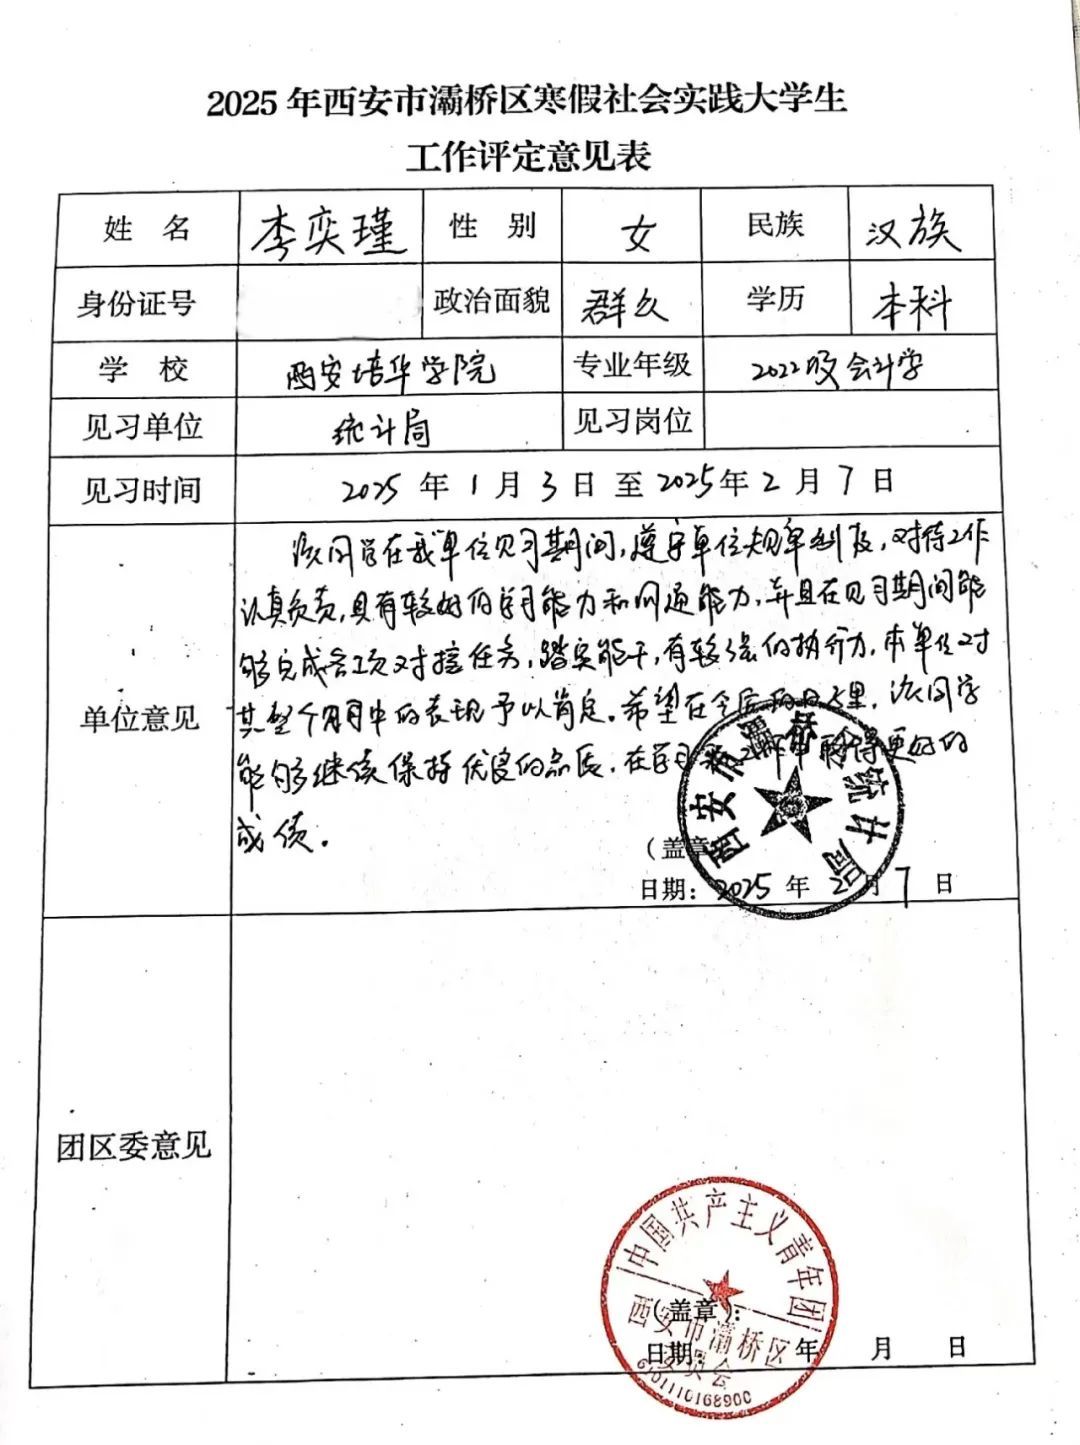 2025年西安市灞桥区寒假社会实践大学生
工作评定意见表
姓 名 李奕瑾 性 别 女 民族 汉族
身份证号 政治面貌 群众 学历 本科
学 校 西安培华学院 专业年级 2022级会计学
见习单位 统计局 见习岗位
见习时间 2025年1月3日至2025年2月7日
单位意见
该同学在我单位见习期间,遵守单位规章制度,对待工作
认真负责,具有较好的学习能力和沟通能力,并且在见习期间能
够完成各项对接任务,踏实能干,有较强的执行力,本单位对
其整个月中的表现予以肯定。希望在今后的日子里,该同学
能够继续保持优良的品质,在学习和工作中取得更好的
成绩。
西安市灞桥区统计局
(盖章
日期:2025年2月7日
团区委意见
中国共产主义青年团
西安市灞桥区
委员会
(盖章):
日期: 年 月 日
6101110168900